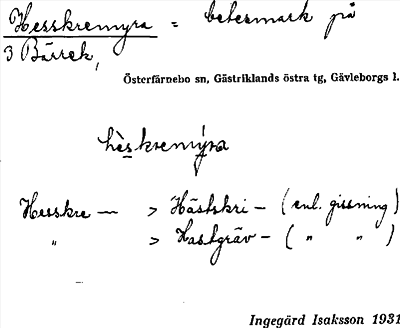 Hesskremyra = betesmark på
3 Bärrek,
Österfärnebo sn, Gästriklands östra tg, Gävleborgs l.
hèskremýra
Hesskre — > Hästskri – (enl. gissning)
" > Hastgräv – ( " " )
Ingegärd Isaksson 1931